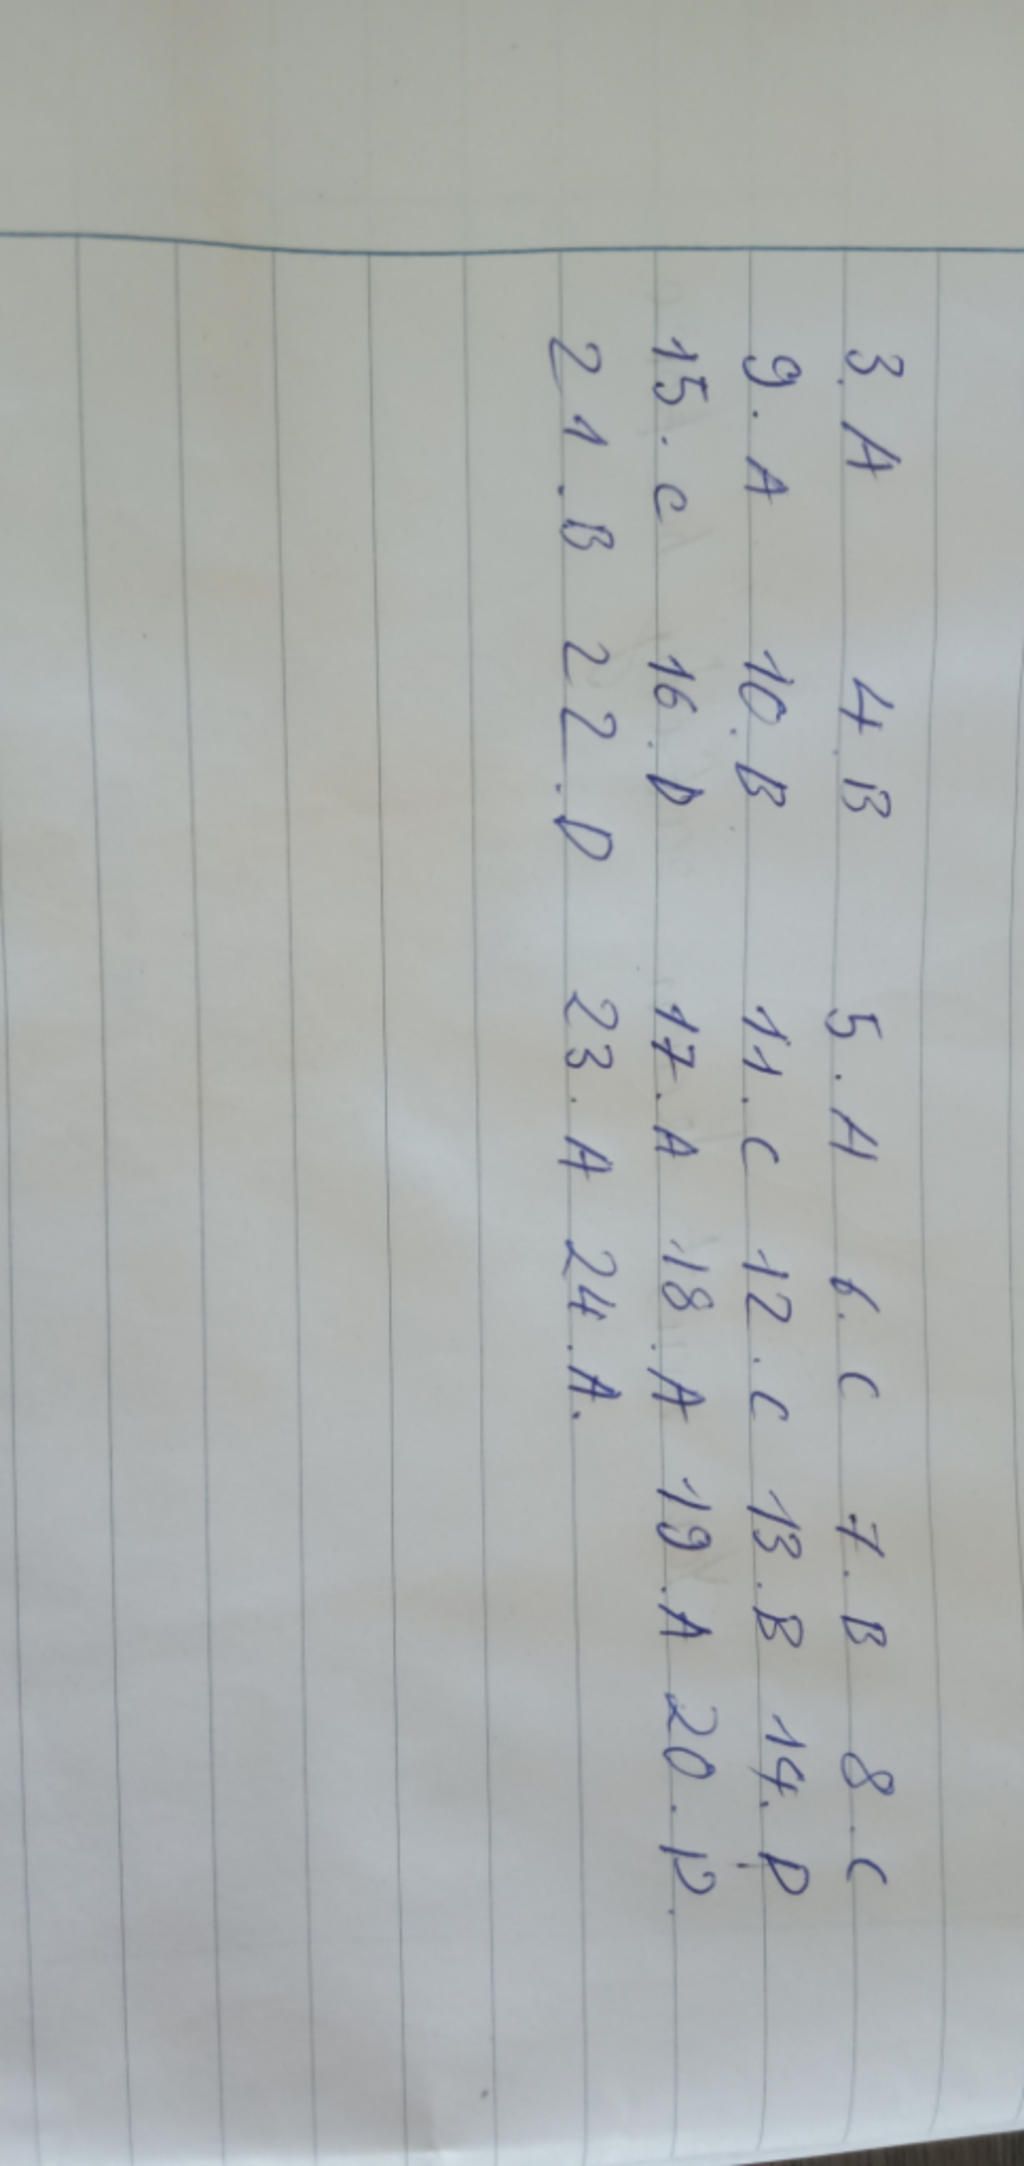 3. A 4. B 5. A 6. C 7. B 8. C
9. A 10. B 11. C 12. C 13. B 14. D
15. C 16. D 17. A 18. A 19. A 20. D.
21. B 22. D 23. A 24. A.